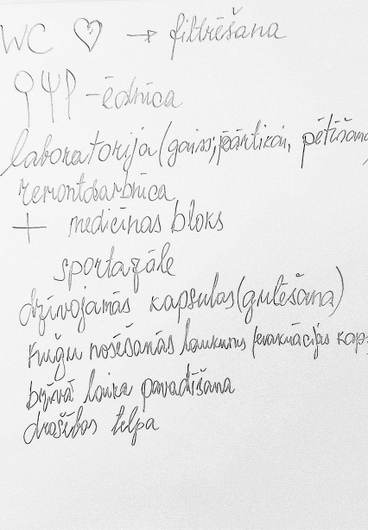 WC ♡ → filtrēšana
-ēdnīca
laboratorija (gaiss; pārtikai, pētīšana
remontdarbnīca
+ medicīnas bloks
sportazāle
dzīvojamās kapsulas (gulēšana)
Kuģu nosēšanās laukums evakuācijas kap
brīvā laika pavadīšana
drošības telpa